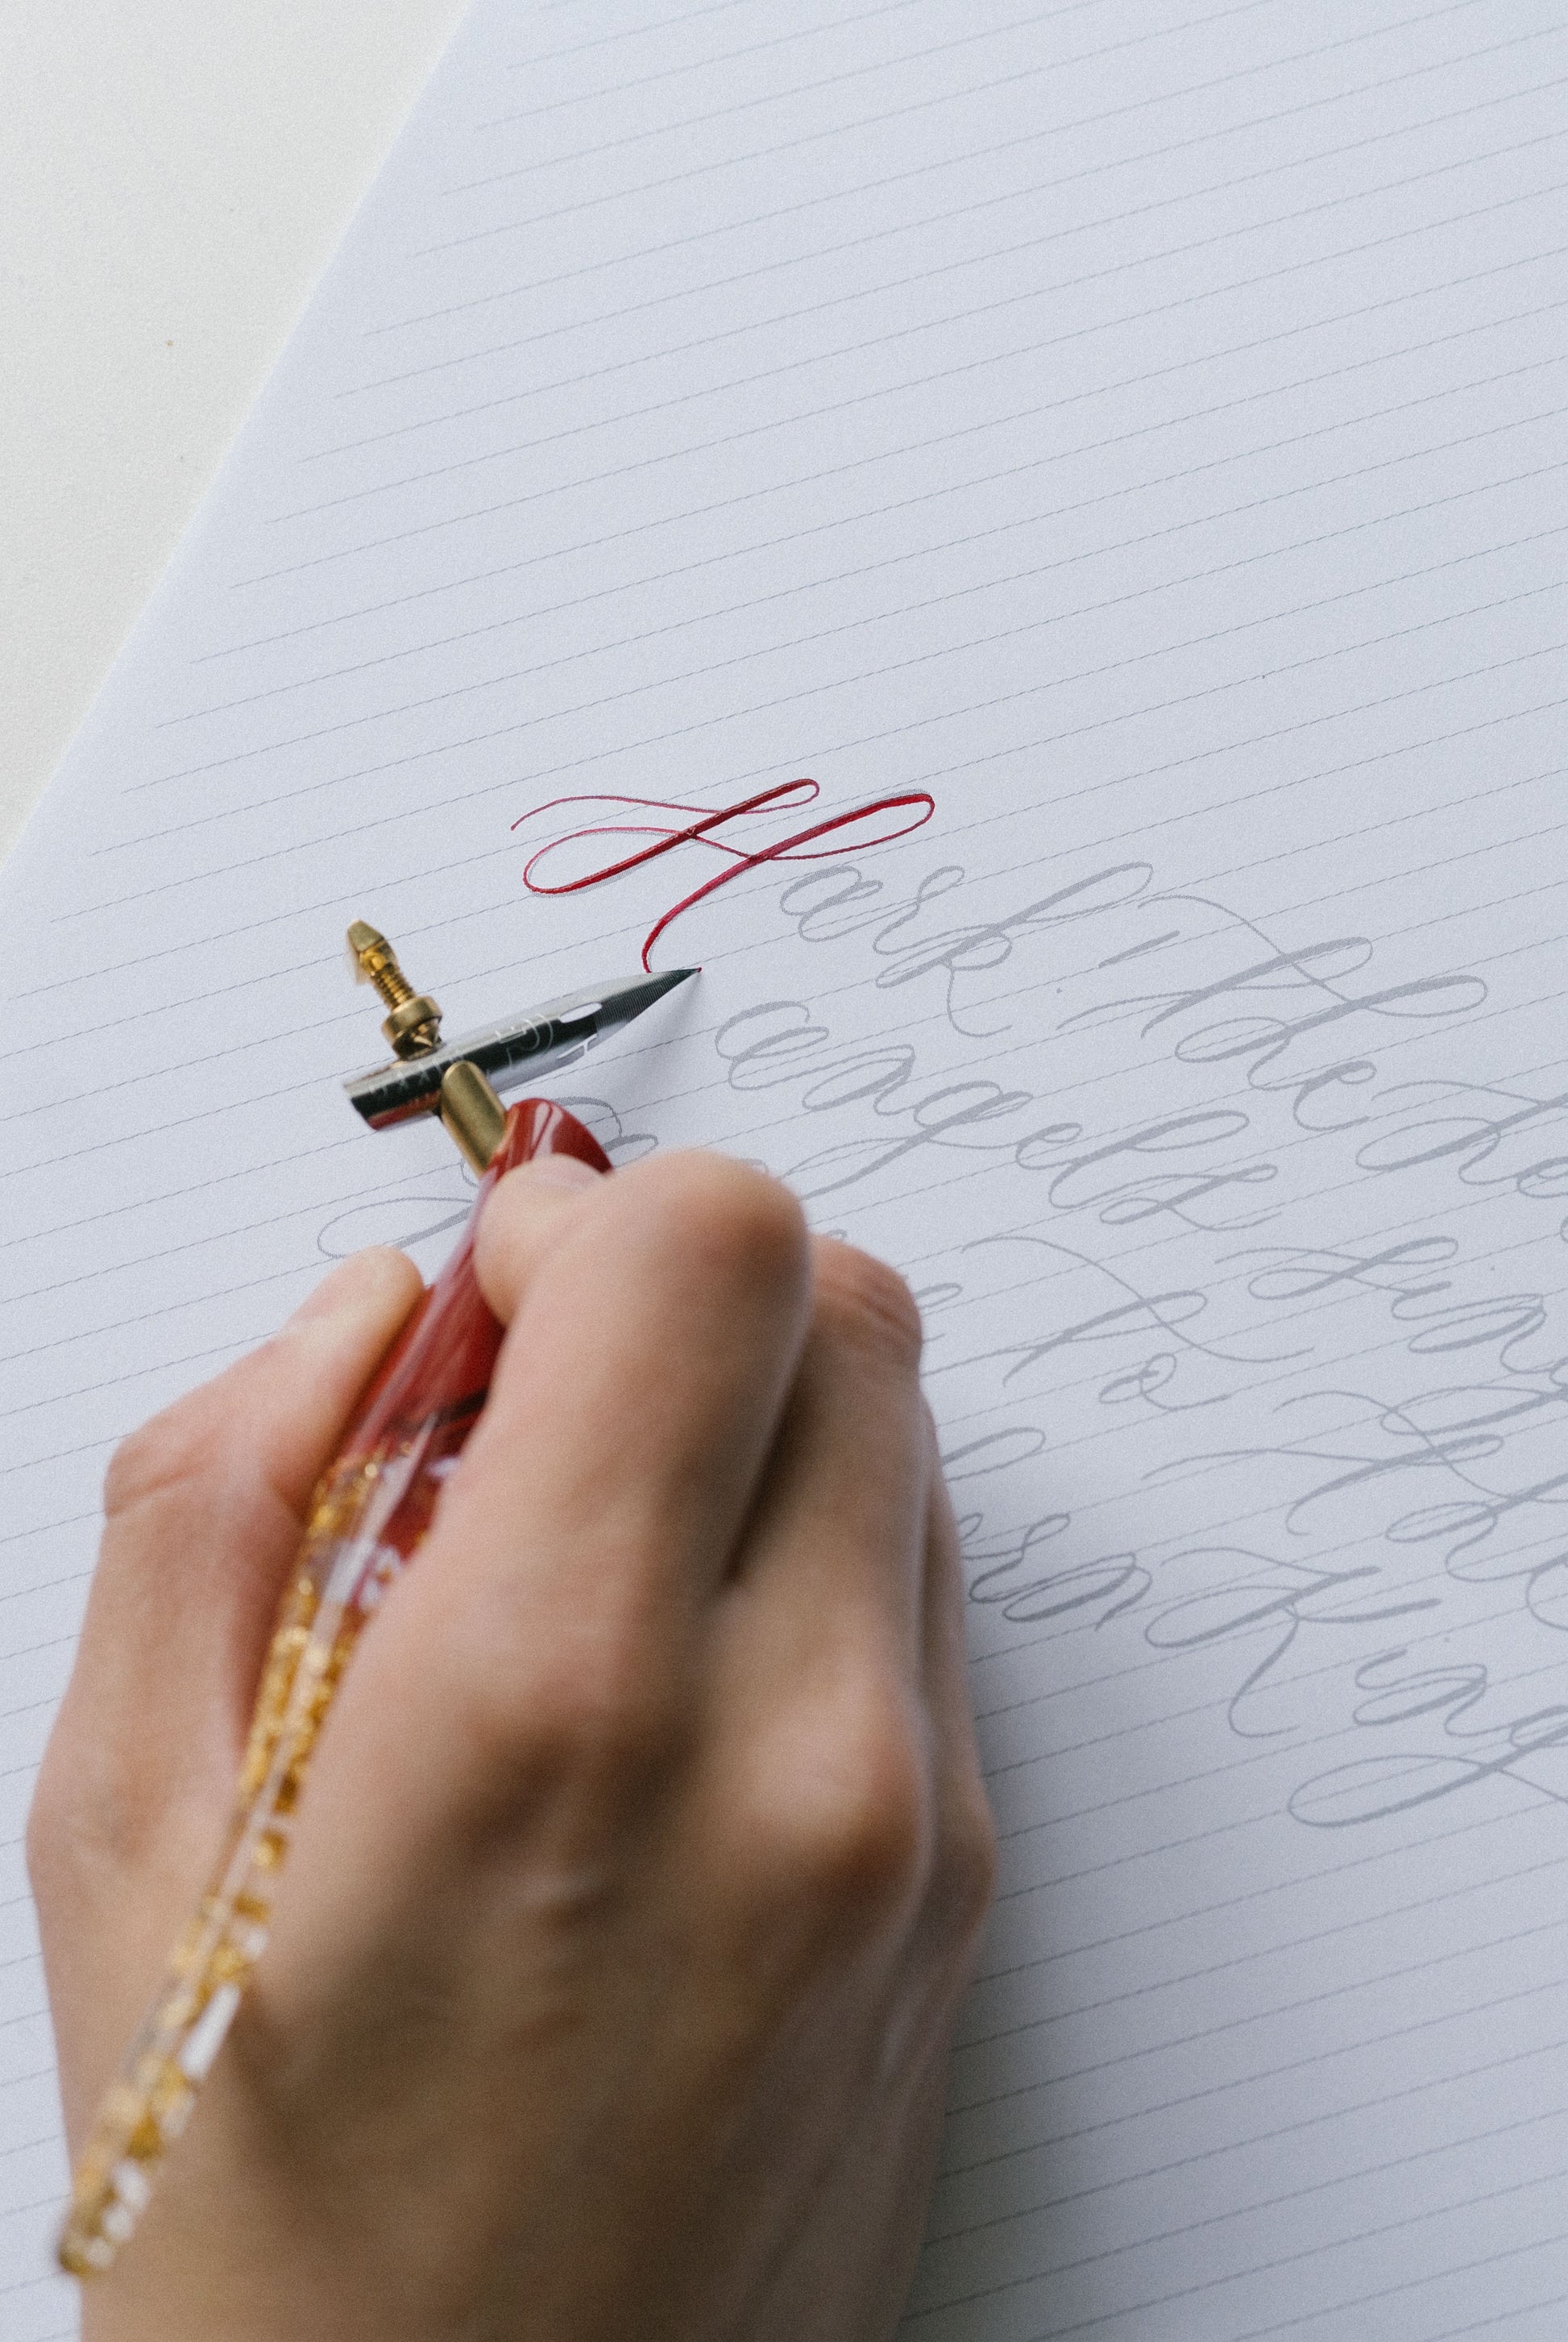 Hark! the
angels sing
to the
born King